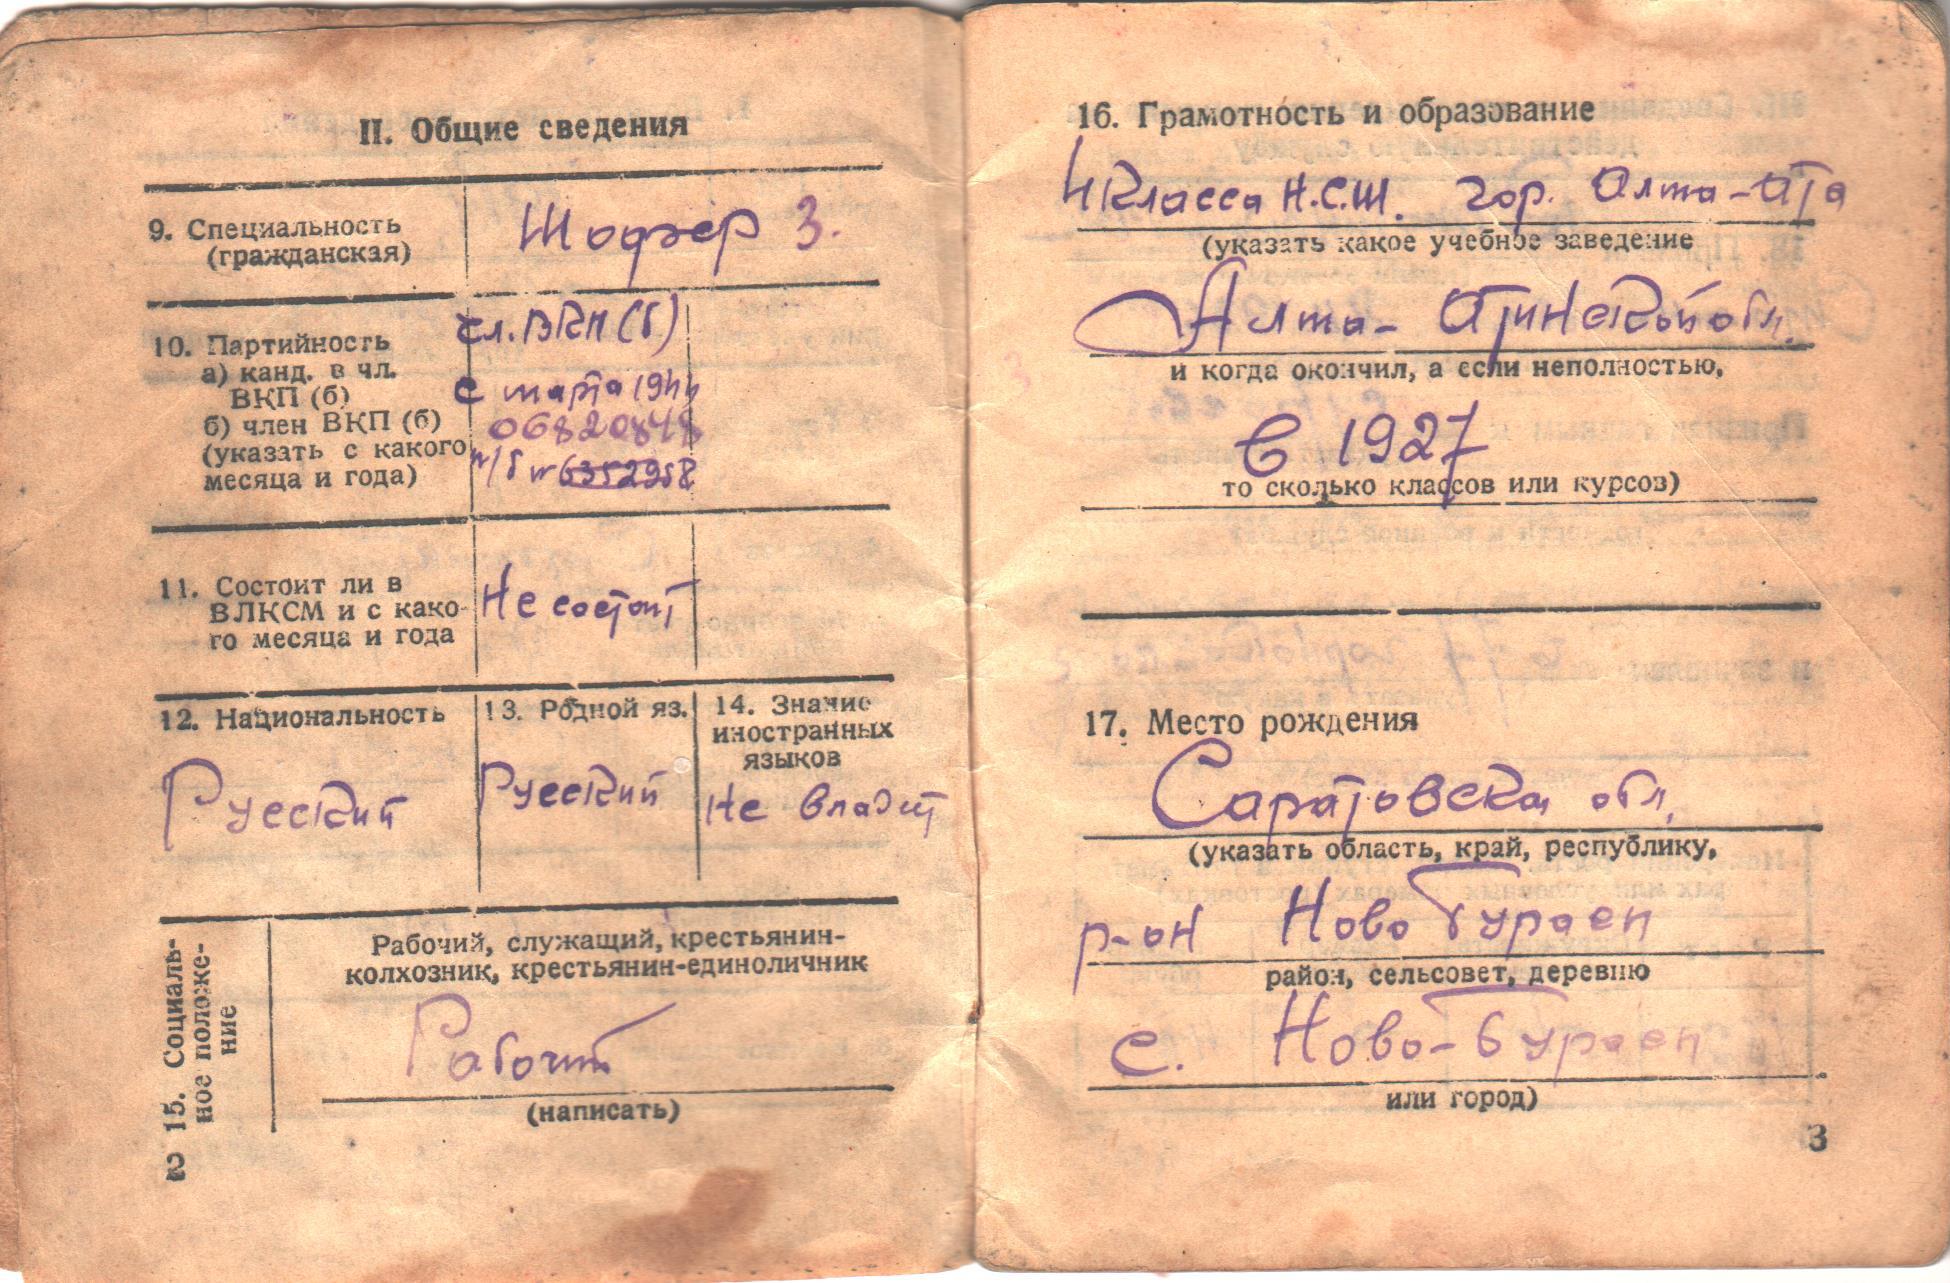 II. Общие сведения
9. Специальность
(гражданская)
Шофер 3.
10. Партийность
а) канд. в чл.
ВКП (б)
б) член ВКП (б)
(указать с какого
месяца и года)
чл. ВКП (б)
с марта 1944
06820848
п/б № 6352958
11. Состоит ли в
ВЛКСМ и с како-
го месяца и года
Не состоит
12. Национальность
Русский
13. Родной яз.
Русский
14. Знание
иностранных
языков
Не владит
15. Социаль-
ное положе-
ние
Рабочий, служащий, крестьянин-
колхозник, крестьянин-единоличник
Рабочий
(написать)
2
16. Грамотность и образование
4 класса Н.С.Ш. гор. Алма-Ата
(указать какое учебное заведение
Алма-Атинской обл.
и когда окончил, а если неполностью,
в 1927
то сколько классов или курсов)
17. Место рождения
Саратовская обл.
(указать область, край, республику,
р-он Ново Бурасы
район, сельсовет, деревню
с. Ново-Бурасы
или город)
3